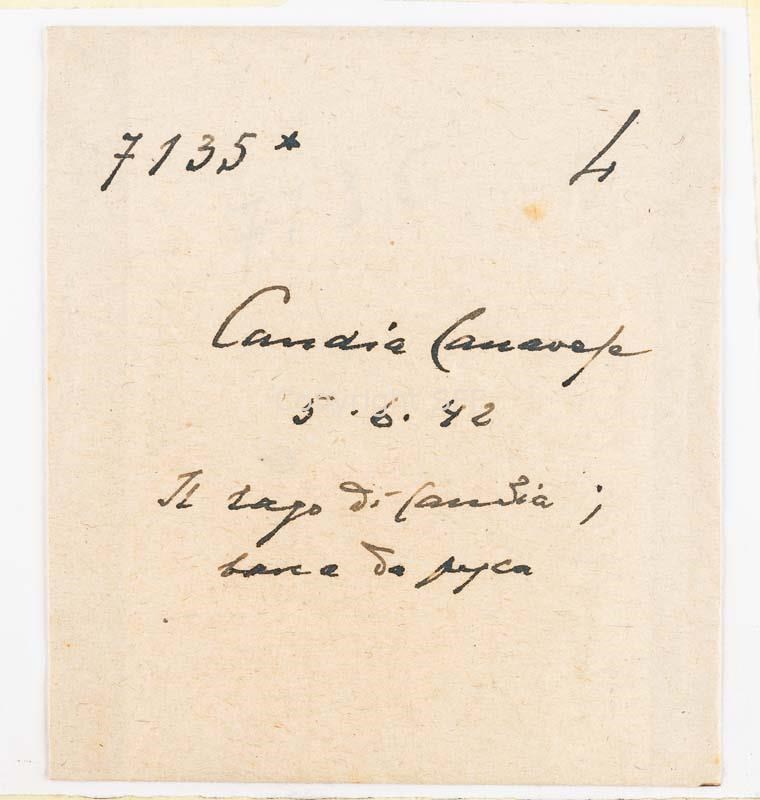 7135* 4
Candia Canavese
5.6.42
Il lago di Candia;
barca da pesca